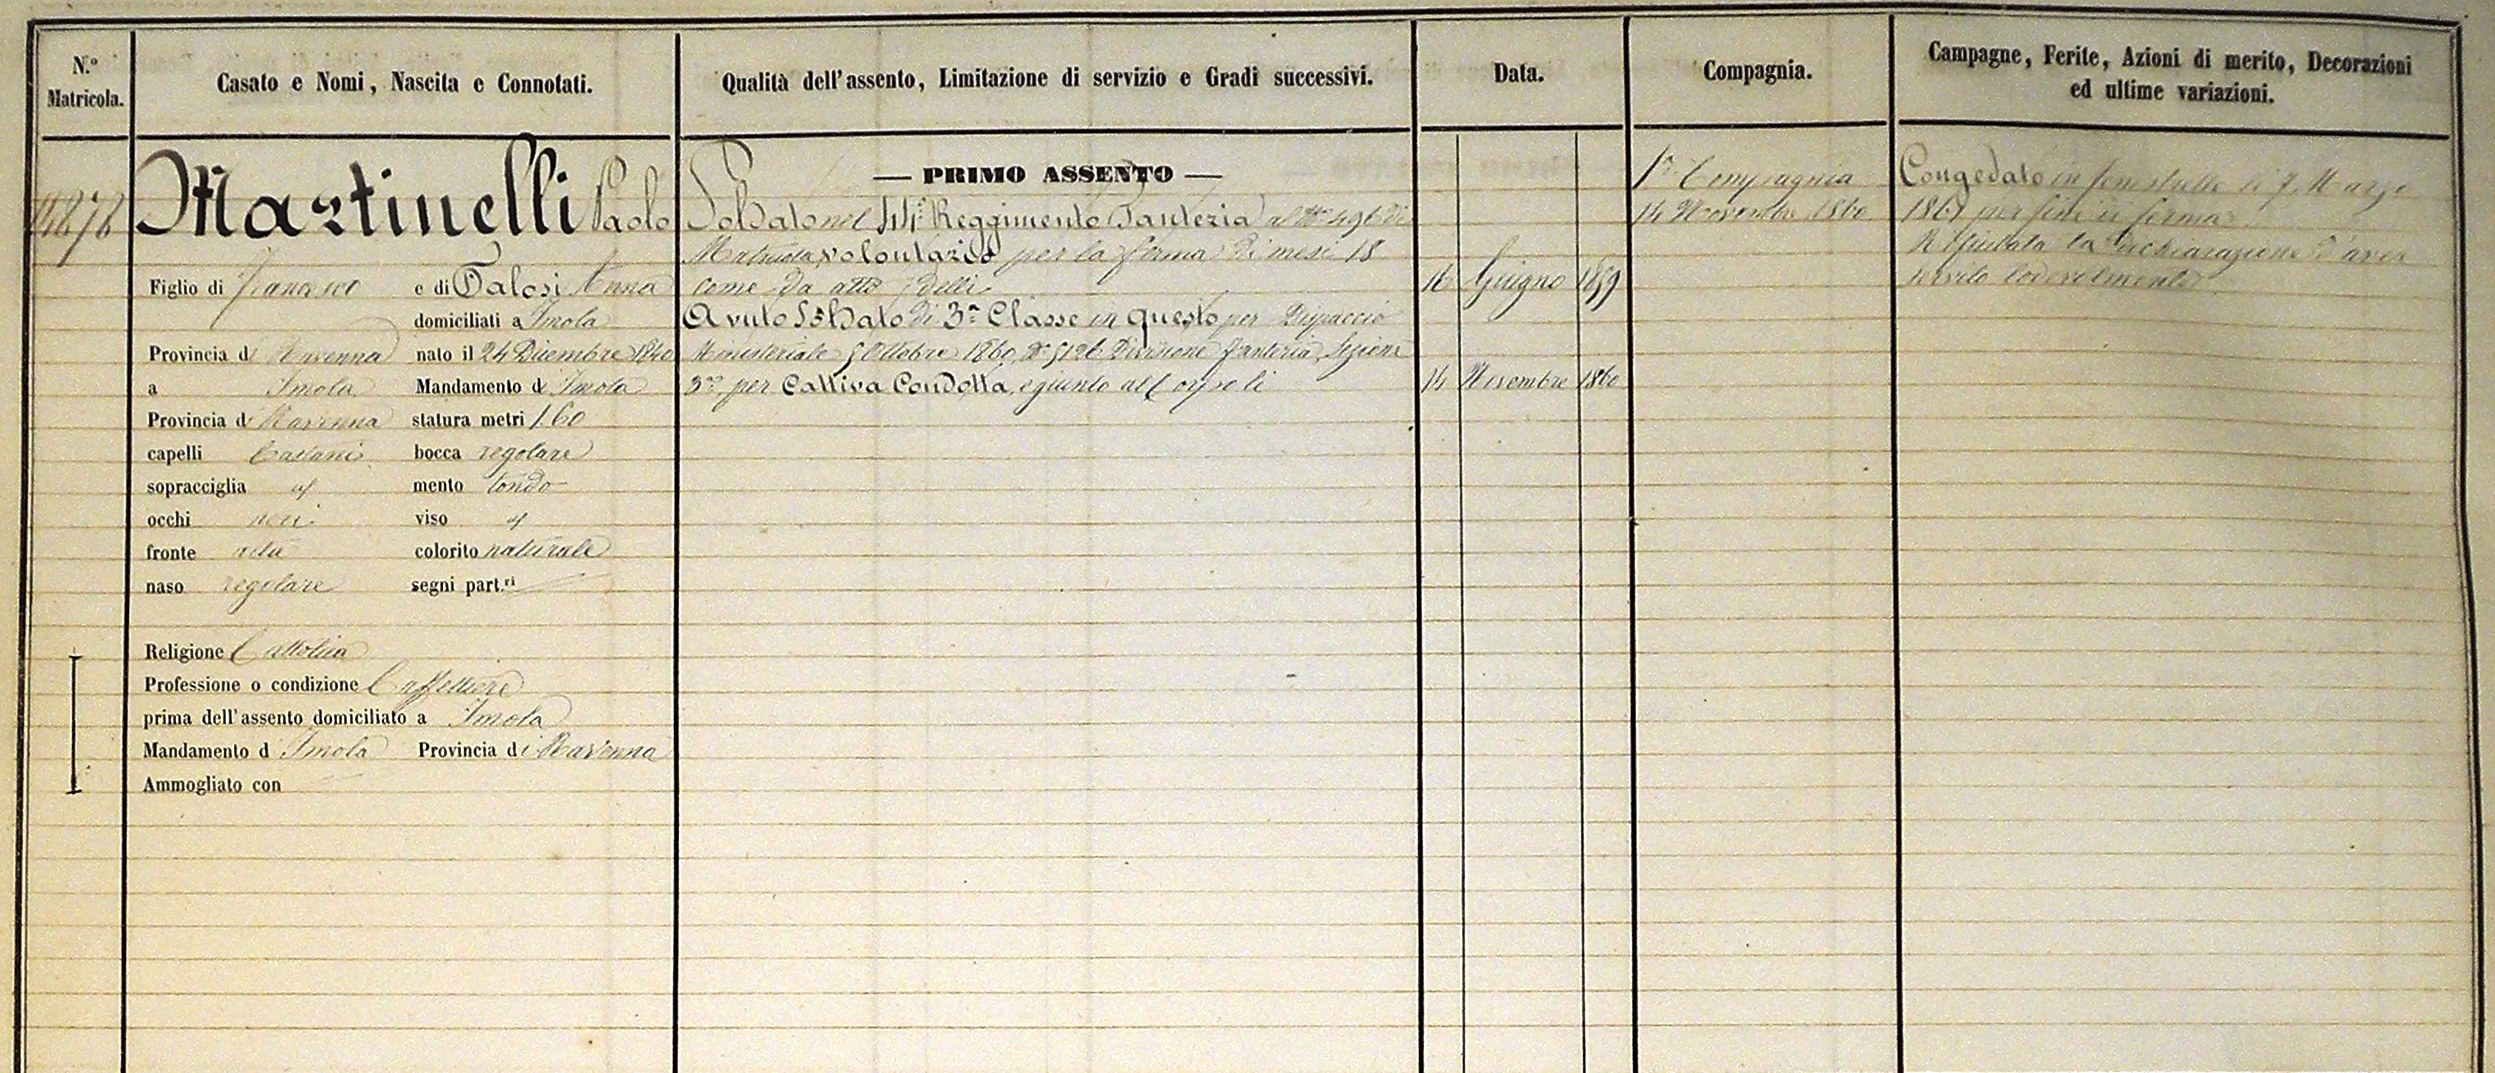 N.º Matricola.
Casato e Nomi, Nascita e Connotati.
Qualità dell'assento, Limitazione di servizio e Gradi successivi.
Data.
Compagnia.
Campagne, Ferite, Azioni di merito, Decorazioni
ed ultime variazioni.
4878
Martinelli Paolo
Figlio di Francesco e di Talosi Anna
domiciliati a Imola
Provincia di Ravenna nato il 24 Dicembre 1840
a Imola Mandamento d Imola
Provincia di Ravenna statura metri 1.60
capelli Castani bocca regolare
sopracciglia id mento tondo
occhi neri viso id
fronte alta colorito naturale
naso regolare segni part.ri
Religione Cattolica
Professione o condizione Caffettiere
prima dell'assento domiciliato a Imola
Mandamento d Imola Provincia di Ravenna
Ammogliato con
— PRIMO ASSENTO —
Soldato nel 44º Reggimento Fanteria al Nº 496 di
Matricola, volontario per la ferma di mesi 18
come da atto delli 16 Giugno 1859
Avuto Soldato di 3ª Classe in questo per Dispaccio
Ministeriale 5 Ottobre 1860, Nº 5126 Divisione Fanteria, Sezione
3ª, per Cattiva Condotta, e giunto al Corpo li 14 Novembre 1860
1ª Compagnia
14 Novembre 1860
Congedato in Fenestrelle li 7 Marzo
1861 per fine di ferma
Rifiutata la dichiarazione d'aver
servito lodevolmente